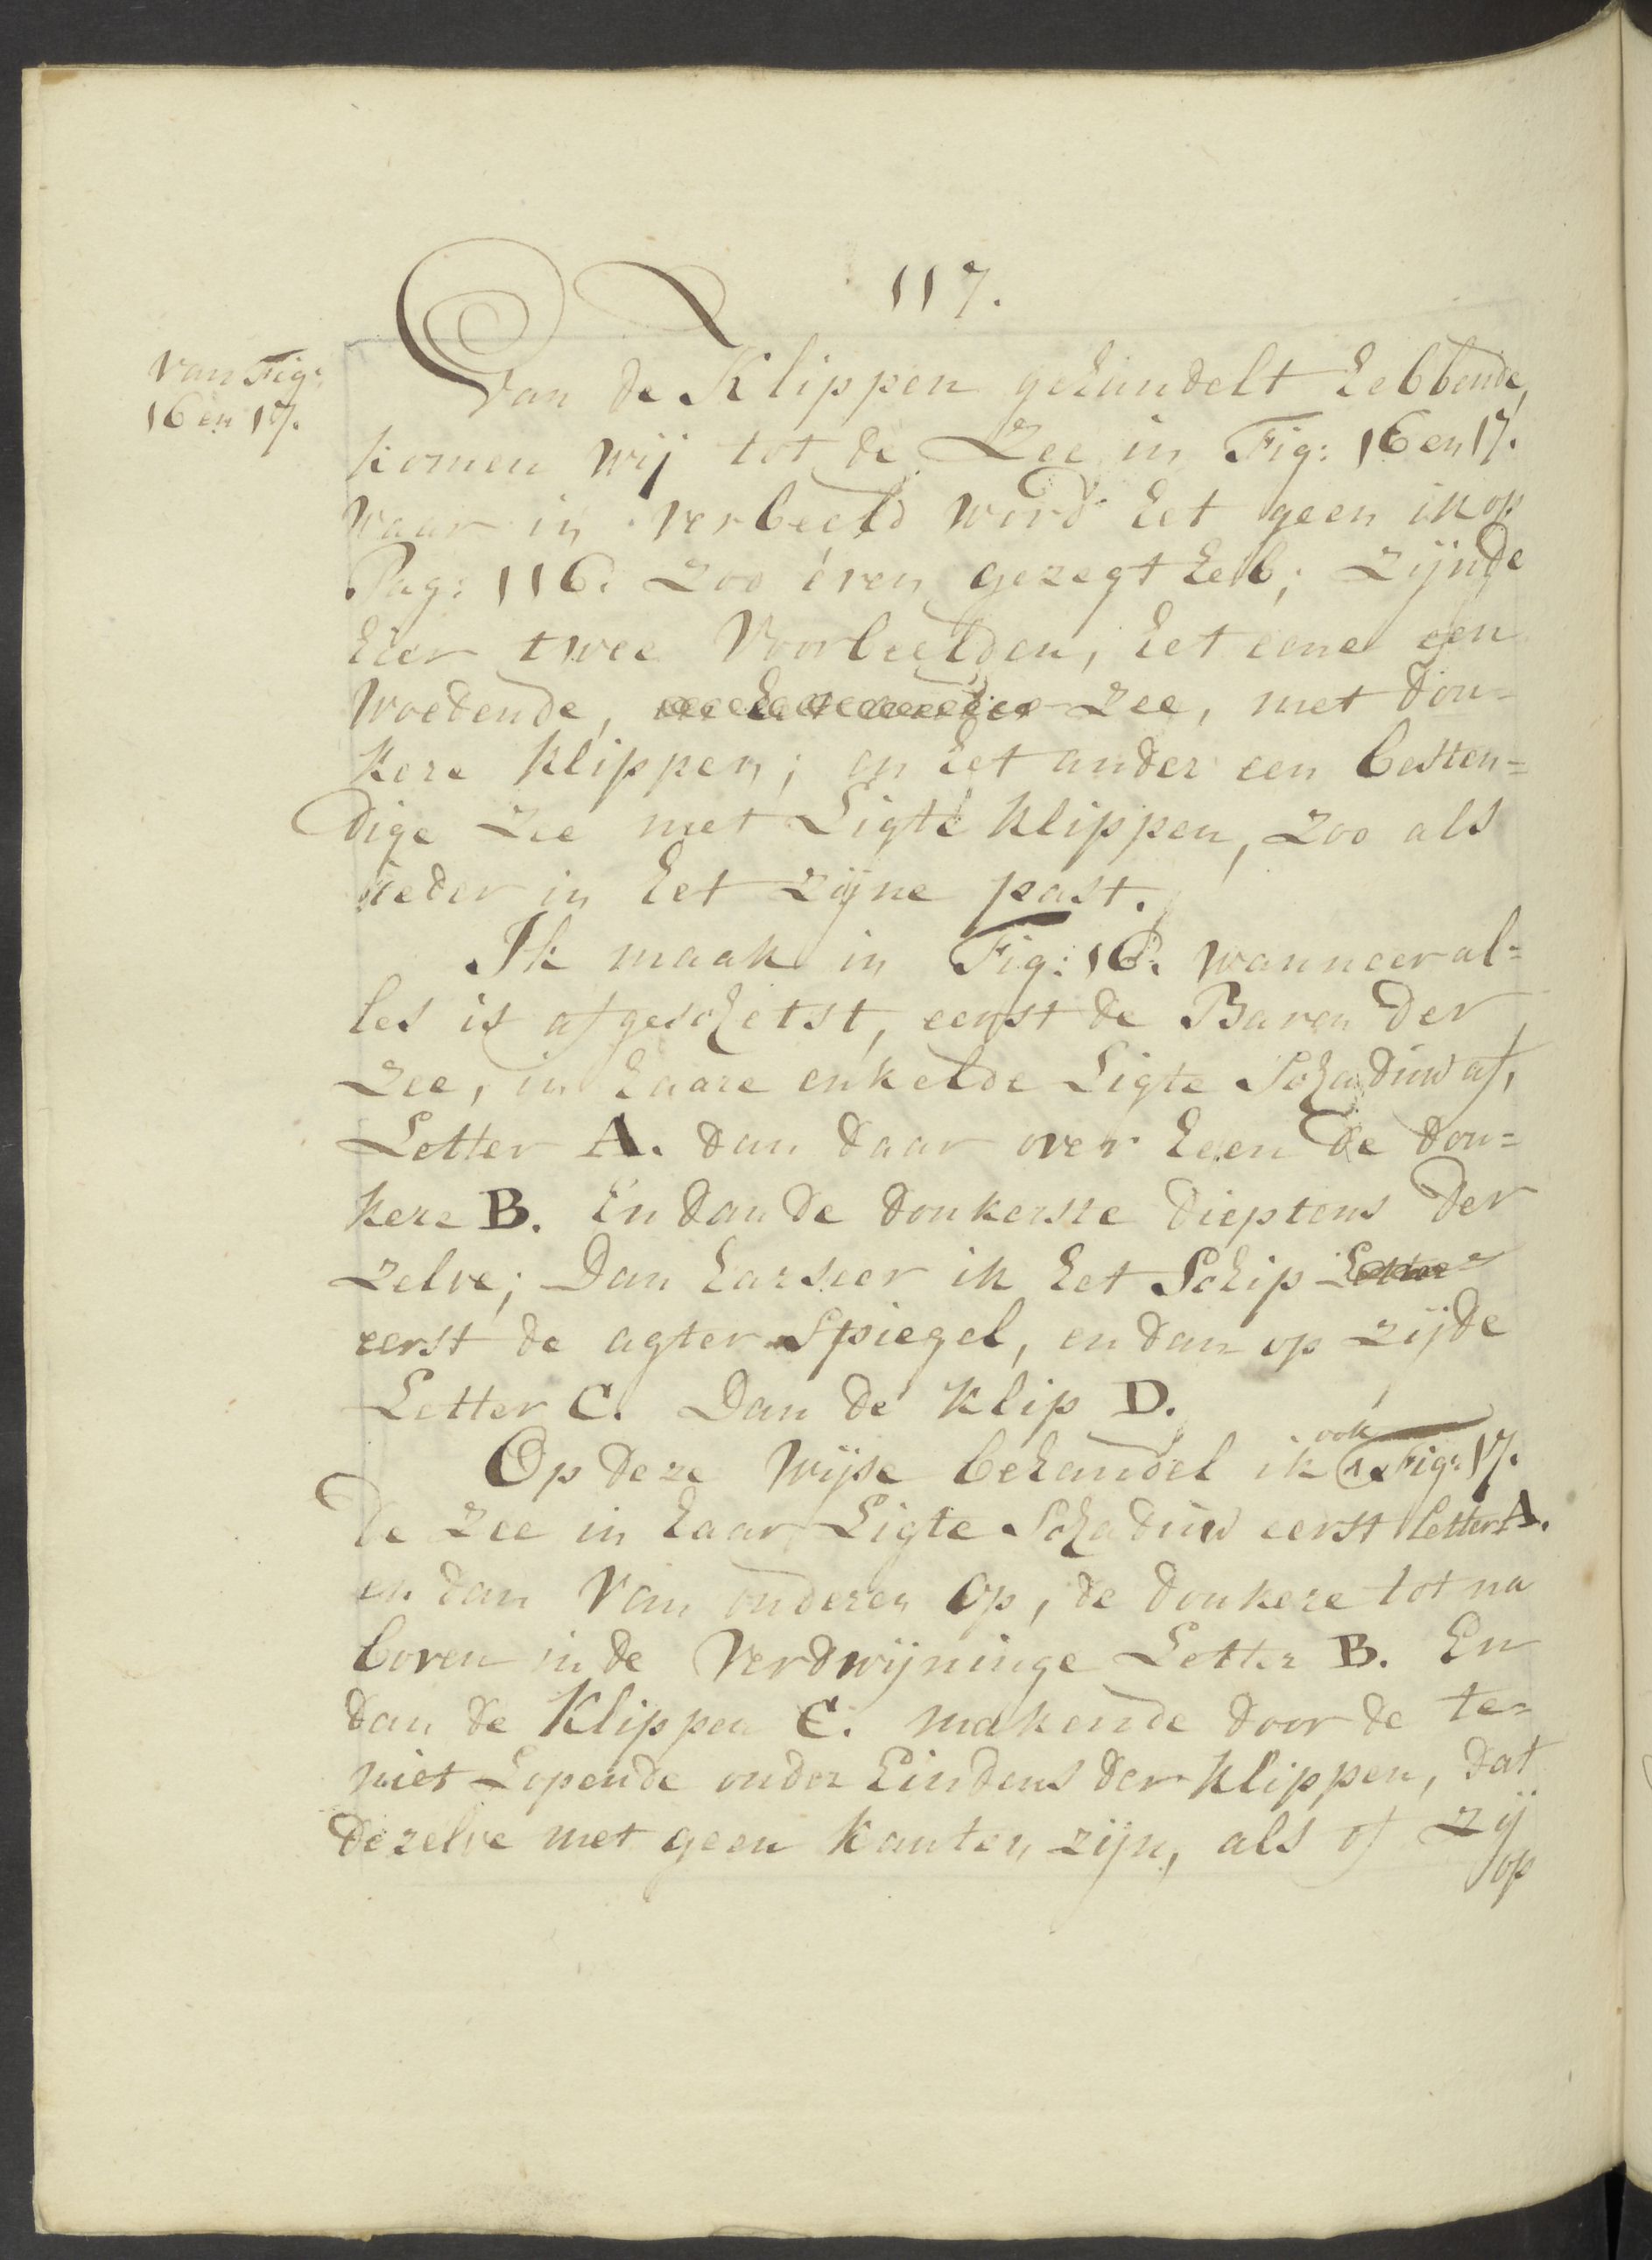 117.
Van Fig:
16 en 17.
Van de Klippen gehandelt hebbende,
komen wij tot de Zee in Fig: 16 en 17.
Waar in verbeeld word het geen ik op
Pag: 116. zoo even gezegt heb; zijnde
hier twee Voorbeelden, het eene een
Woedende, zee, met don=
kere klippen; en het ander een besten=
dige zee met Ligte klippen, zoo als
ieder in het zijne past.
Ik maak in Fig: 16. wanneer al=
les is afgeschetst, eerst de Baren der
Zee, in haare enkelde Ligte Schaduw af,
Letter A. dan daar over heen de don=
kere B. En dan de donkerste dieptens der
zelve; Dan harseer ik het Schip Letter
eerst de agter Spiegel, en dan op zijde
Letter C. Dan de klip D.
Op deze Wijse behandel ik ook Fig: 17.
De zee in haar Ligte Schaduw eerst Letter A.
en dan Van onderen op, de donkere tot na
boven in de Verdwijninge Letter B. En
dan de Klippen C. makende door de te=
niet Lopende onder Eindens der klippen, dat
dezelve met geen kanten zijn, als of zij
op